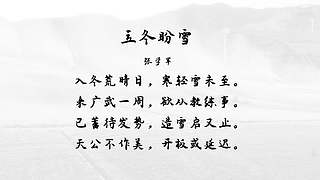 立冬盼雪
张学军
入冬荒晴日，寒轻雪未至。
来广武一周，欲从教练事。
已蓄待发势，造雪启又止。
天公不作美，开板或延迟。